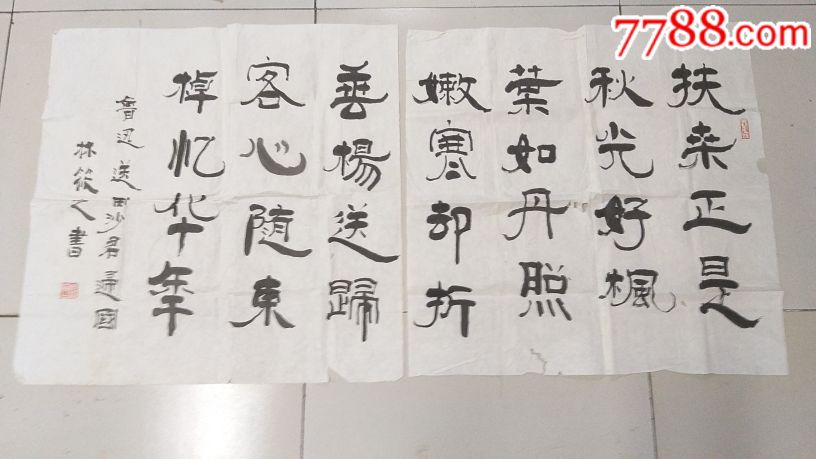 7788.com
扶桒正是
秋光好楓
葉如丹照
嫩寒却折
垂楊送歸
客心随東
棹忆华年
魯迅送田沙君歸國
林筱之書